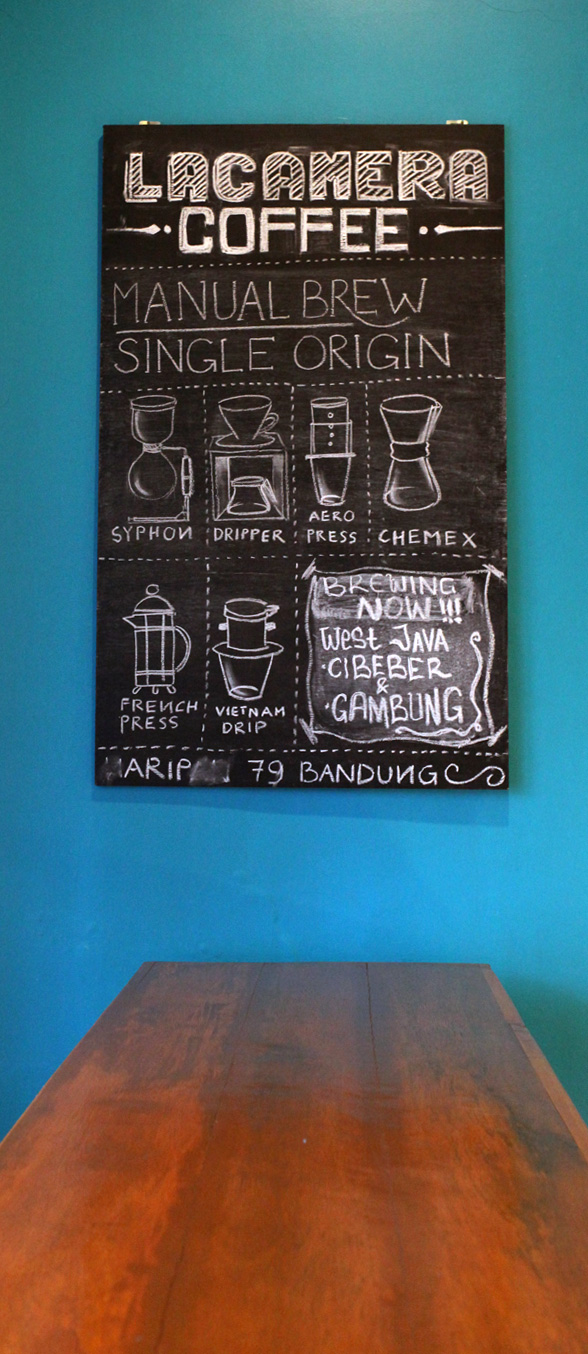 LACAMERA
COFFEE
MANUAL BREW
SINGLE ORIGIN
SYPHON
DRIPPER
AERO
PRESS
CHEMEX
FRENCH
PRESS
VIETNAM
DRIP
BREWING
NOW !!!
West JAVA
·CIBEBER
&
·GAMBUNG
79 BANDUNG